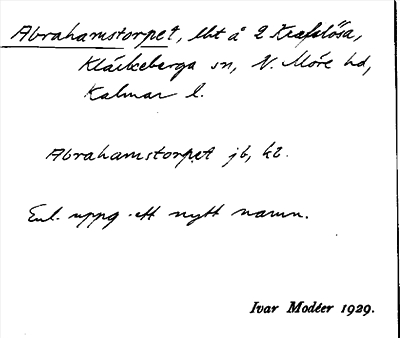 Abrahamstorpet, lht å 2 Kraflösa,
Kläckeberga sn, N. Möre hd,
Kalmar l.
Abrahamstorpet jb, k2.
Enl. uppg. ett nytt namn.
Ivar Modéer 1929.